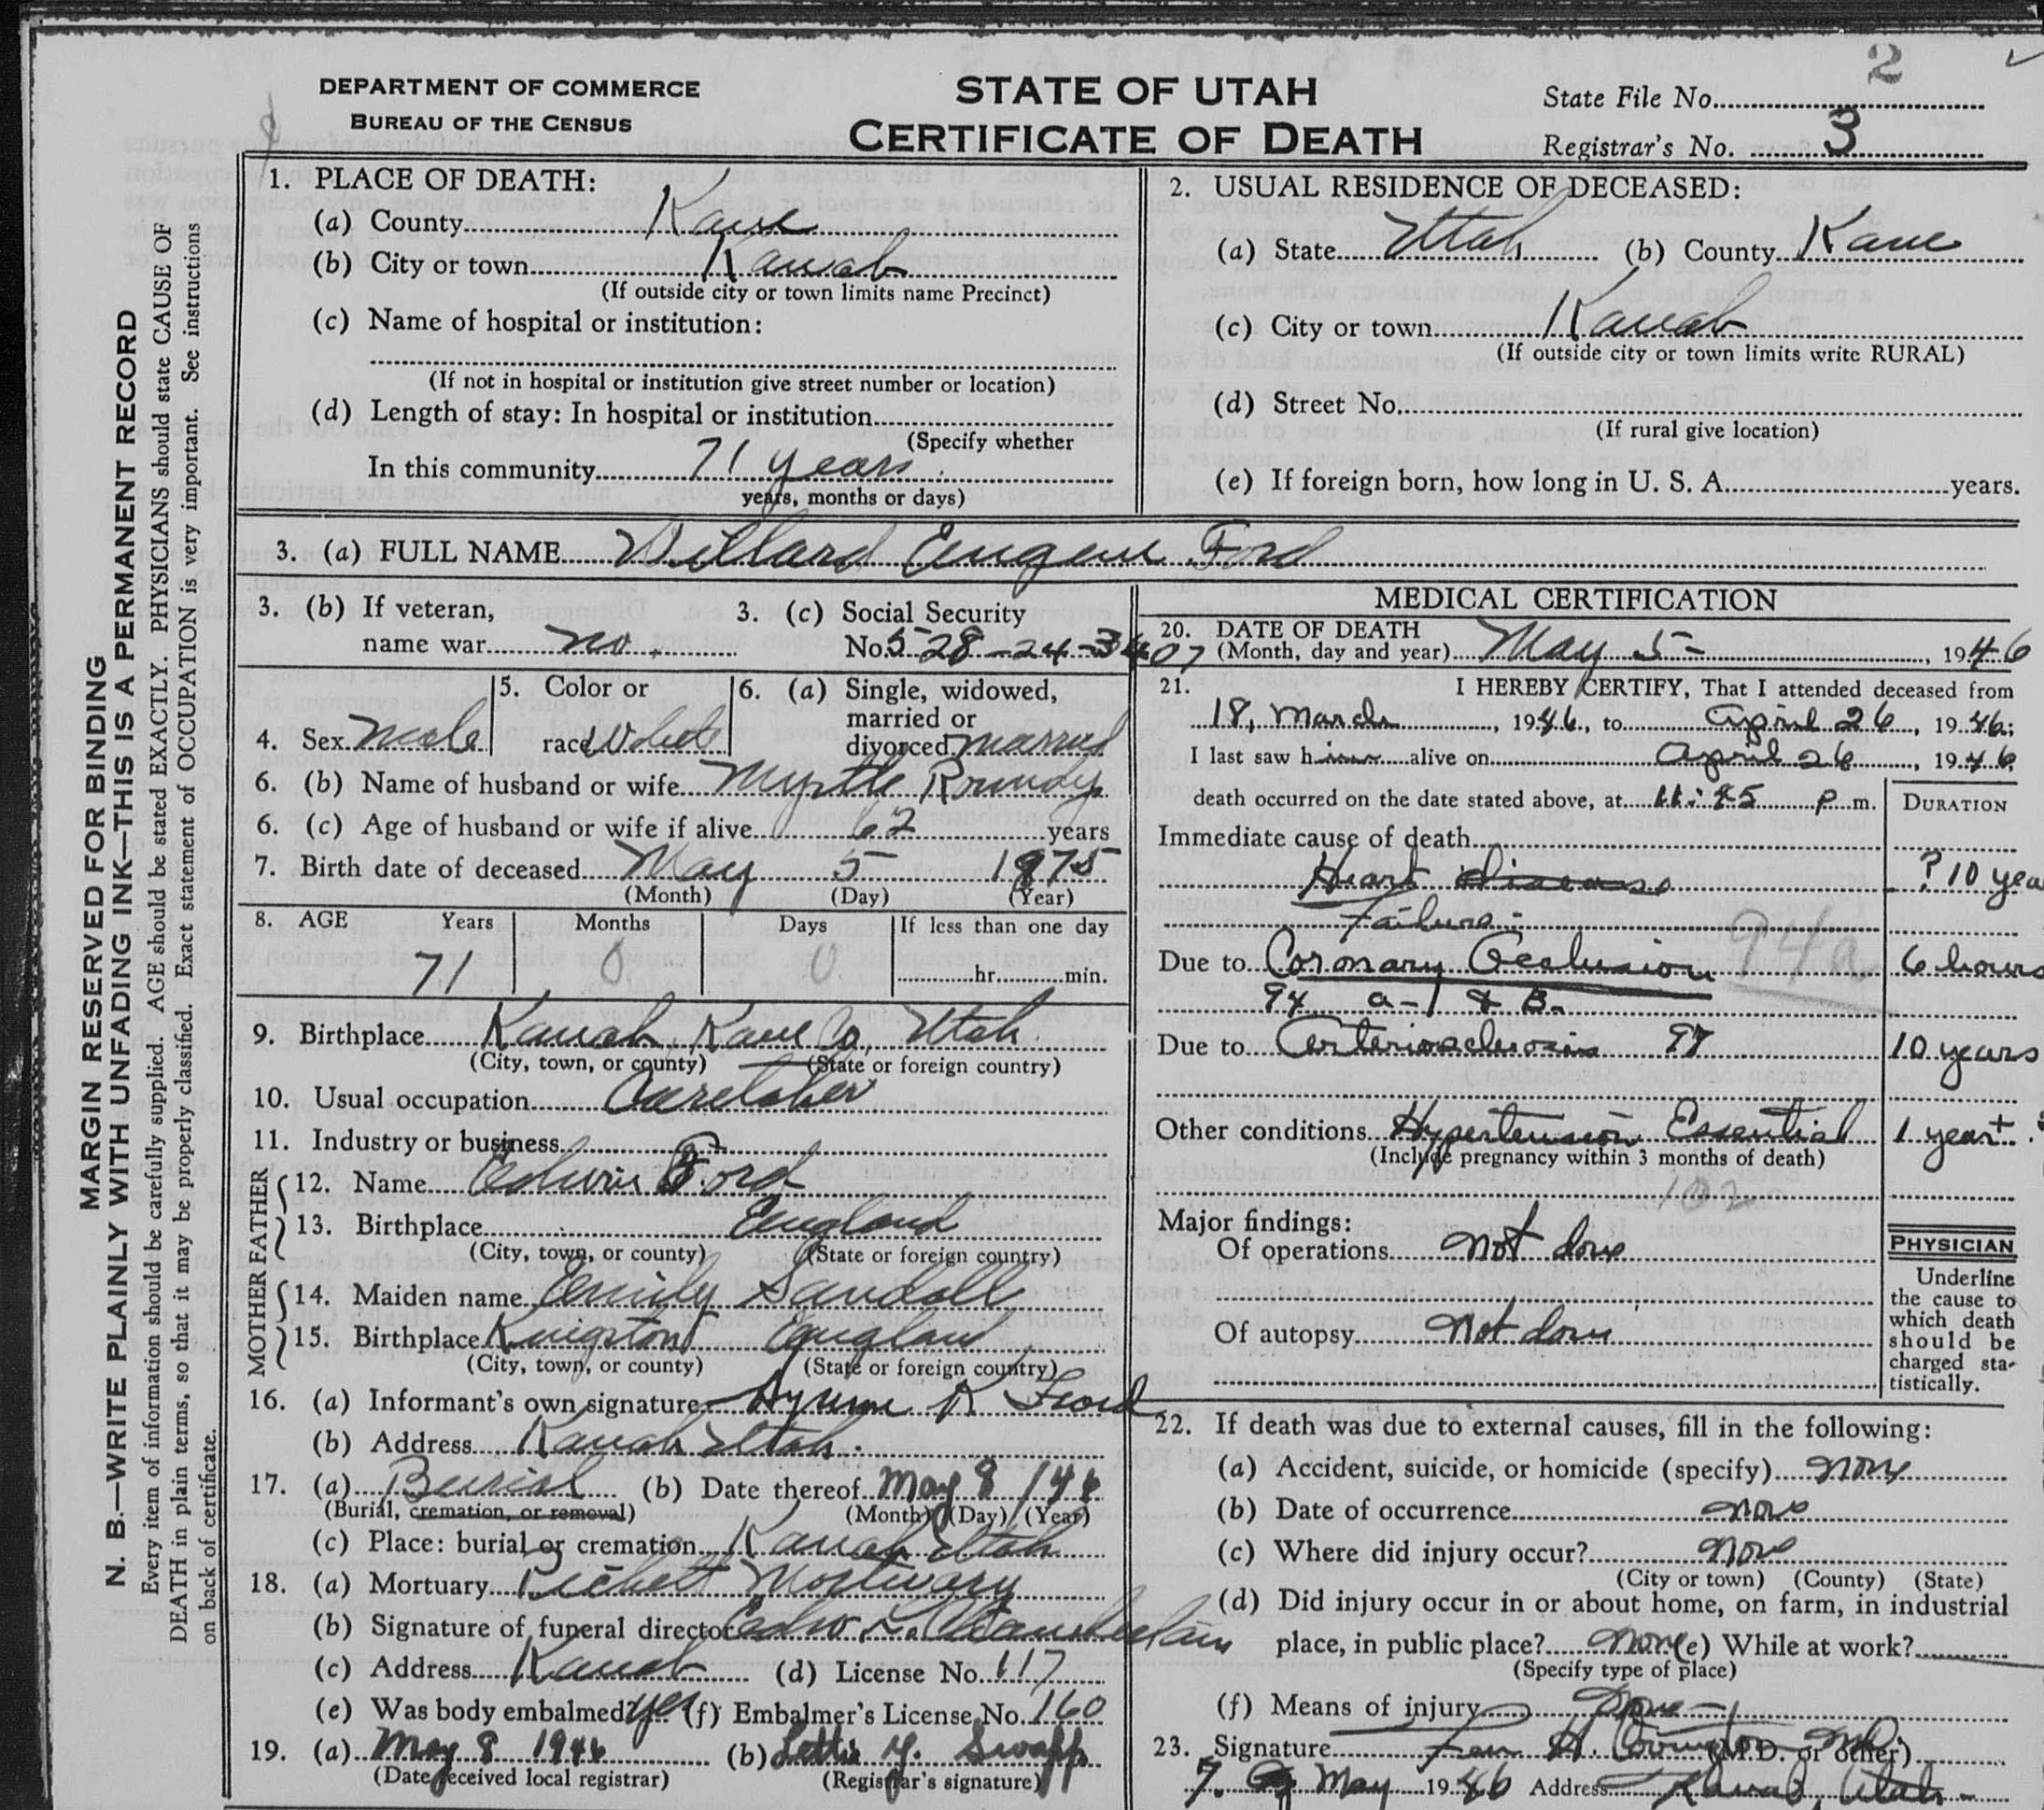 2
DEPARTMENT OF COMMERCE
BUREAU OF THE CENSUS
STATE OF UTAH
CERTIFICATE OF DEATH
State File No.
Registrar's No. 3
MARGIN RESERVED FOR BINDING
N. B.—WRITE PLAINLY WITH UNFADING INK—THIS IS A PERMANENT RECORD
Every item of information should be carefully supplied. AGE should be stated EXACTLY. PHYSICIANS should state CAUSE OF
DEATH in plain terms, so that it may be properly classified. Exact statement of OCCUPATION is very important. See instructions
on back of certificate.
1. PLACE OF DEATH:
(a) County Kane
(b) City or town Kanab
(If outside city or town limits name Precinct)
(c) Name of hospital or institution:
(If not in hospital or institution give street number or location)
(d) Length of stay: In hospital or institution
(Specify whether
In this community 71 years
years, months or days)
2. USUAL RESIDENCE OF DECEASED:
(a) State Utah (b) County Kane
(c) City or town Kanab
(If outside city or town limits write RURAL)
(d) Street No.
(If rural give location)
(e) If foreign born, how long in U. S. A. years.
3. (a) FULL NAME Willard Eugene Ford
3. (b) If veteran,
name war no
3. (c) Social Security
No. 528-24-3407
4. Sex male
5. Color or
race White
6. (a) Single, widowed,
married or
divorced married
6. (b) Name of husband or wife Myrtle Roundy
6. (c) Age of husband or wife if alive 62 years
7. Birth date of deceased May 5 1875
(Month) (Day) (Year)
8. AGE Years Months Days If less than one day
71 0 0 hr. min.
9. Birthplace Kanab, Kane Co, Utah
(City, town, or county) (State or foreign country)
10. Usual occupation Caretaker
11. Industry or business
FATHER
12. Name Edwin Ford
13. Birthplace England
(City, town, or county) (State or foreign country)
MOTHER
14. Maiden name Emily Sandall
15. Birthplace Kingston England
(City, town, or county) (State or foreign country)
16. (a) Informant's own signature K Ford
(b) Address Kanab Utah.
17. (a) Burial (b) Date thereof May 8 1946
(Burial, cremation, or removal) (Month) (Day) (Year)
(c) Place: burial or cremation Kanab Utah
18. (a) Mortuary Mortuary
(b) Signature of funeral director Chamberlain
(c) Address Kanab (d) License No. 117
(e) Was body embalmed? yes (f) Embalmer's License No. 160
19. (a) May 8 1946 (b) Lettie Y. Swapp
(Date received local registrar) (Registrar's signature)
MEDICAL CERTIFICATION
20. DATE OF DEATH
(Month, day and year) May 5 - , 1946
21. I HEREBY CERTIFY, That I attended deceased from
18, March , 1946, to April 26 , 1946;
I last saw him alive on April 26 , 1946
death occurred on the date stated above, at 11:45 P m.
DURATION
Immediate cause of death
Heart disease ? 10 yea
Failure -
94a
Due to Coronary Occlusion 6 hours
94 a-1 & B.
Due to Arteriosclerosis 97 10 years
Other conditions Hypertension Essential 1 year+
(Include pregnancy within 3 months of death)
102
Major findings:
Of operations not done
Of autopsy not done
PHYSICIAN
Underline
the cause to
which death
should be
charged sta-
tistically.
22. If death was due to external causes, fill in the following:
(a) Accident, suicide, or homicide (specify) none
(b) Date of occurrence none
(c) Where did injury occur? none
(City or town) (County) (State)
(d) Did injury occur in or about home, on farm, in industrial
place, in public place? none (e) While at work?
(Specify type of place)
(f) Means of injury none
23. Signature H. Covington MD. (M.D. or other)
7. May 1946 Address Kanab, Utah.